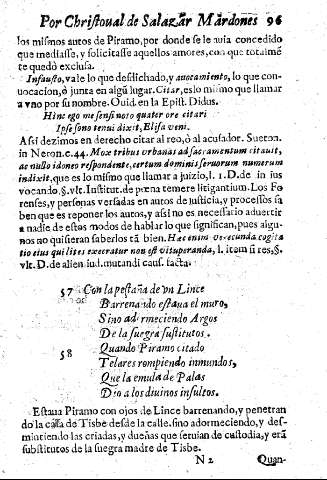 Por Christoual de Salazar Mardones 96
los mismos autos de Piramo, por donde se le auia concedido
que mediasse, y solicitasse aquellos amores, con que totalmẽ
te quedò exclusa.
Infausto, vale lo que desdichado, y auocamiento, lo que con-
uocacion, ò junta en algũ lugar. Citar, es lo mismo que llamar
a vno por su nombre. Ouid. en la Epist. Didus.
Hinc ego me sensi noto quater ore citari
Ipse sono tenui dixit, Elisa veni.
Assi dezimos en derecho citar al reo, ò al acusador. Sueton.
in Neron. c. 44. Mox tribus urbanas ad sacramentum citauit,
ac nullo idoneo respondente, certum dominis seruorum numerum
indixit, que es lo mismo que llamar a juizio, l. 1. D. de in ius
vocando. §. vlt. Institut. de pœna temere litigantium. Los Fo-
renses, y personas versadas en autos de justicia, y processos sa
ben que es reponer los autos, y assi no es necessario aduertir
a nadie de estos modos de hablar lo que significan, pues algu-
nos no quisieran saberlos tã bien. Hæc enim verecunda cogita
tio eius qui lites execratur non est vituperanda, l. item si res, §.
vlt. D. de alien. iud. mutandi caus. facta.
57 Con la pestaña de vn Lince
Barrenando estaua el muro,
Sino adormeciendo Argos
De la suegra sustitutos.
58 Quando Piramo citado
Telares rompiendo inmundos,
Que la emula de Palas
Dio a los diuinos insultos.
Estaua Piramo con ojos de Lince barrenando, y penetran
do la casa de Tisbe desde la calle, sino adormeciendo, y des-
mintiendo las criadas, y dueñas que seruian de custodia, y erã
substitutos de la suegra madre de Tisbe.
N 2 Quan-